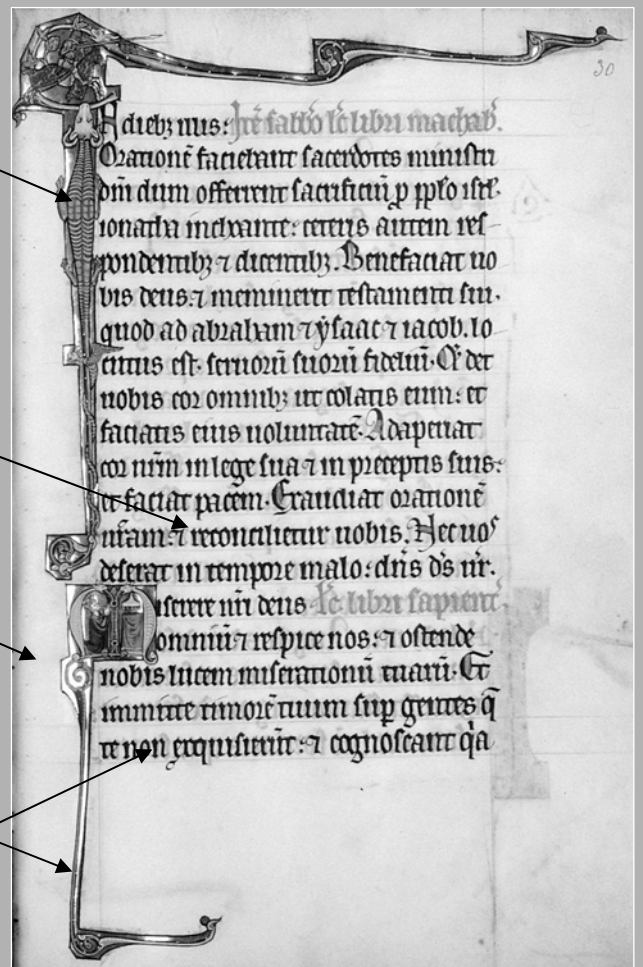 30
Adieb; nris: Itē sabbō lc̄ libri machab̄.
Orationē faciebant sacerdotes ministri
dn̄i dum offerrent sacrificiū p̄ pplo isrl̄.
ionatha inchoante: ceteris autem res-
pondentib; ⁊ dicentib;. Benefaciat uo
bis deus: ⁊ meminerit testamenti sui.
quod ad abraham ⁊ ẏsaac ⁊ iacob. lo
cutus est. seruorū suorū fideliū. Et det
uobis cor omnib; ut colatis eum: et
faciatis eius uoluntatē. Adaperiat
cor ur̄m in lege sua ⁊ in preceptis suis:
et faciat pacem. Exaudiat orationē
ur̄am: ⁊ reconcilietur uobis. Nec uos
deserat in tempore malo: dn̄s d̄s ur̄.
Miserere nr̄i deus Lc̄ libri sapient̄.
omniū ⁊ respice nos: ⁊ ostende
nobis lucem miserationū tuarū. Et
immitte timorē tuum sup̄ gentes q̄
te non exquisierūt: ⁊ cognoscant q̇a